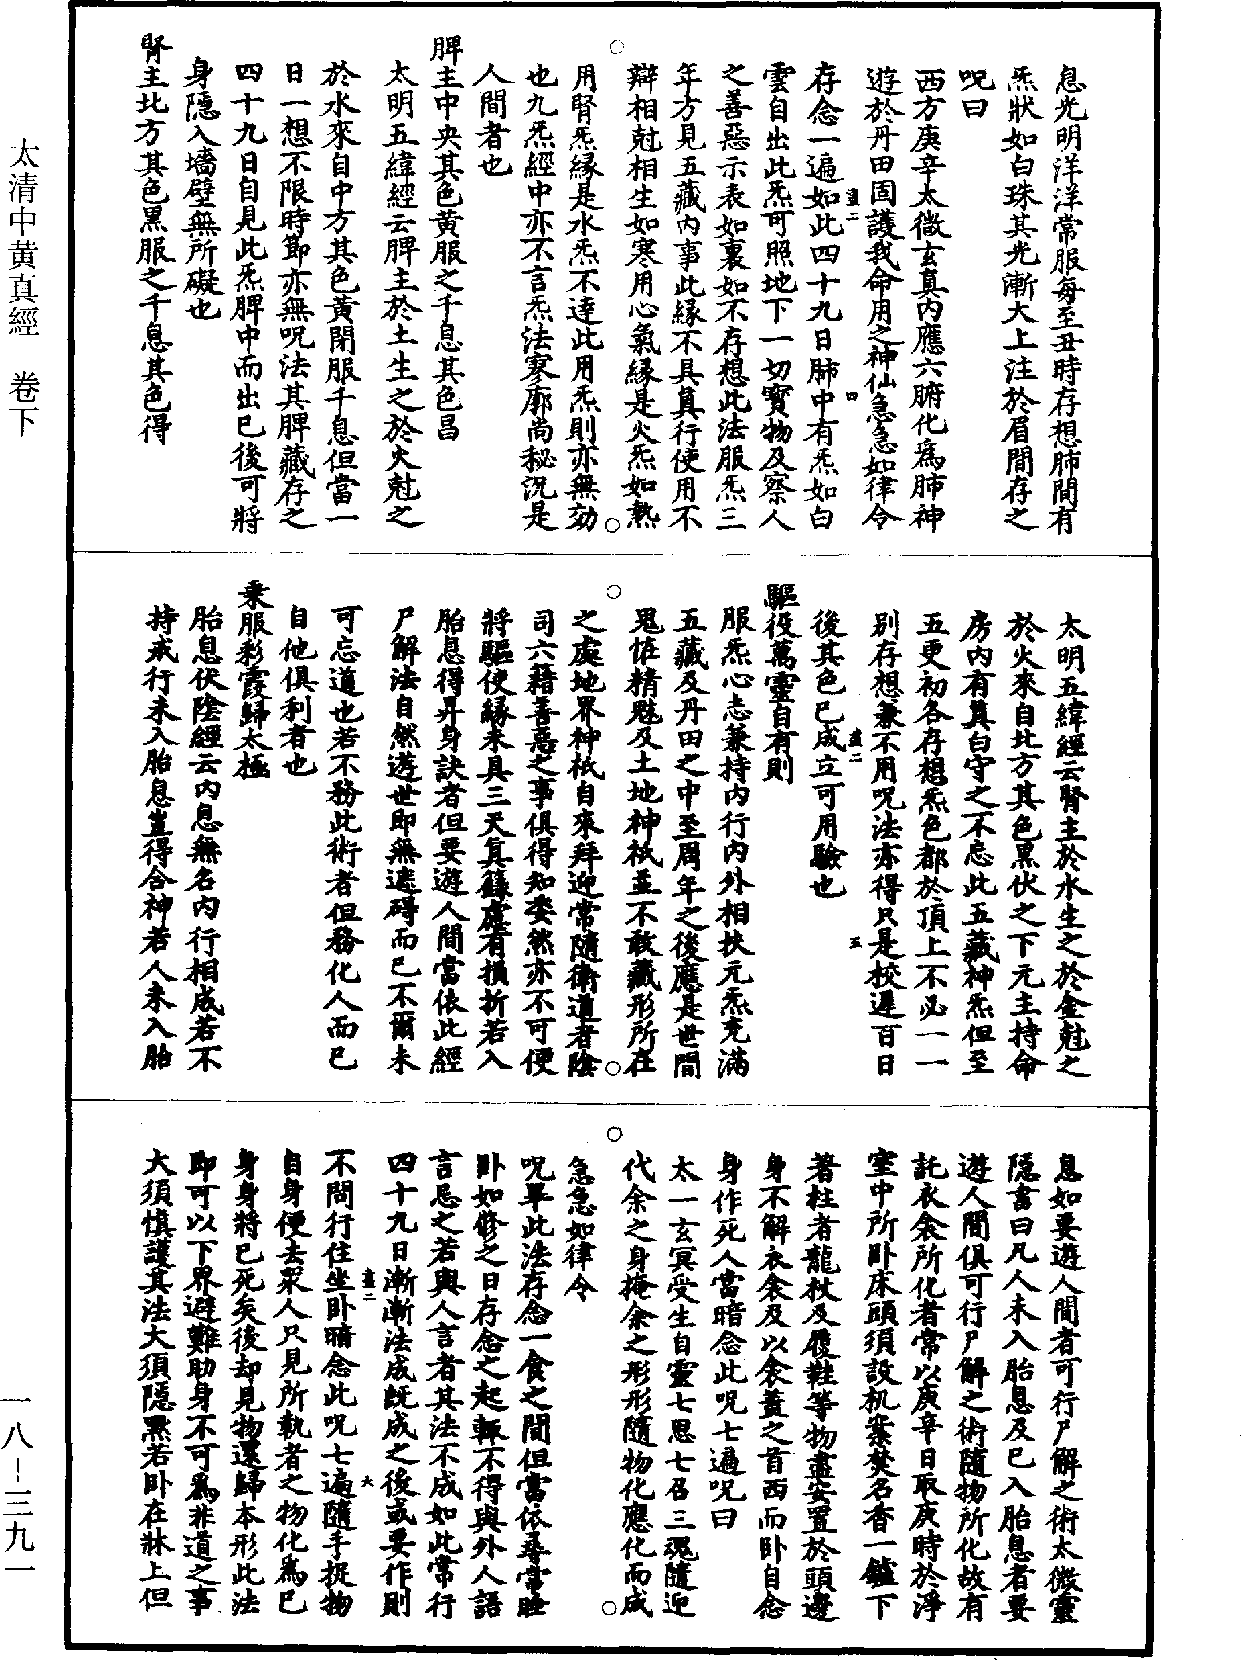 太清中黄真經　卷下
一八－三九一
息光明洋洋常服每至丑時存想肺間有
炁狀如白珠其光漸大上注於眉間存之
呪曰
西方庚辛太微玄真内應六腑化爲肺神
遊於丹田固護我命用之神仙急急如律令
存念一遍如此四十九日肺中有炁如白
雲自出此炁可照地下一切寶物及察人
之善惡示表如裏如不存想此法服炁三
年方見五藏内事此緣不具真行使用不
辯相尅相生如寒用心氣緣是火炁如熱
用腎炁緣是水炁不達此用炁則亦無効
也九炁經中亦不言炁法寥廓尚秘況是
人間者也
脾主中央其色黄服之千息其色昌
太明五緯經云脾主於土生之於火尅之
於水來自中方其色黄閉服千息但當一
日一想不限時節亦無呪法其脾藏存之
四十九日自見此炁脾中而出已後可將
身隱入墻壁無所礙也
腎主北方其色黑服之千息其色得
太明五緯經云腎主於水生之於金尅之
於火來自北方其色黑伏之下元主持命
房内有真白守之不忘此五藏神炁但至
五更初各存想炁色都於頂上不必一一
别存想兼不用呪法亦得只是校遲百日
後其色已成立可用驗也
驅役萬靈自有則
服炁心志兼持内行内外相扶元炁充滿
五藏及丹田之中至周年之後應是世間
鬼恠精魅及土地神祇並不敢藏形所在
之處地界神祇自來拜迎常隨衛道者陰
司六籍善惡之事俱得知委然亦不可便
將驅使緣未具三天真籙慮有損折若入
胎息得昇身訣者但要遊人間當依此經
尸解法自然遊世即無遮碍而已不爾未
可忘道也若不務此術者但務化人而已
自他俱利者也
乘服彩霞歸太極
胎息伏陰經云内息無名内行相成若不
持戒行未入胎息豈得合神若人未入胎
息如要遊人間者可行尸解之術太微靈
隱書曰凡人未入胎息及已入胎息者要
遊人間俱可行尸解之術隨物所化故有
託衣衾所化者常以庚辛日取庚時於淨
室中所卧床頭須設机案焚名香一鑪下
著柱者龍杖及履鞋等物盡安置於頭邊
身不解衣衾及以衾蓋之首西而卧自念
身作死人當暗念此呪七遍呪曰
太一玄冥受生自靈七思七召三魂隨迎
代余之身掩余之形形隨物化應化而成
急急如律令
呪畢此法存念一食之間但當依尋常睡
卧如修之日存念之起輒不得與外人語
言忌之若與人言者其法不成如此常行
四十九日漸漸法成既成之後或要作則
不問行住坐卧暗念此呪七遍隨手捉物
自身便去衆人只見所執者之物化爲已
身身將已死矣後却見物還歸本形此法
即可以下界避難助身不可爲非道之事
大須慎護其法大須隱黙若卧在牀上但